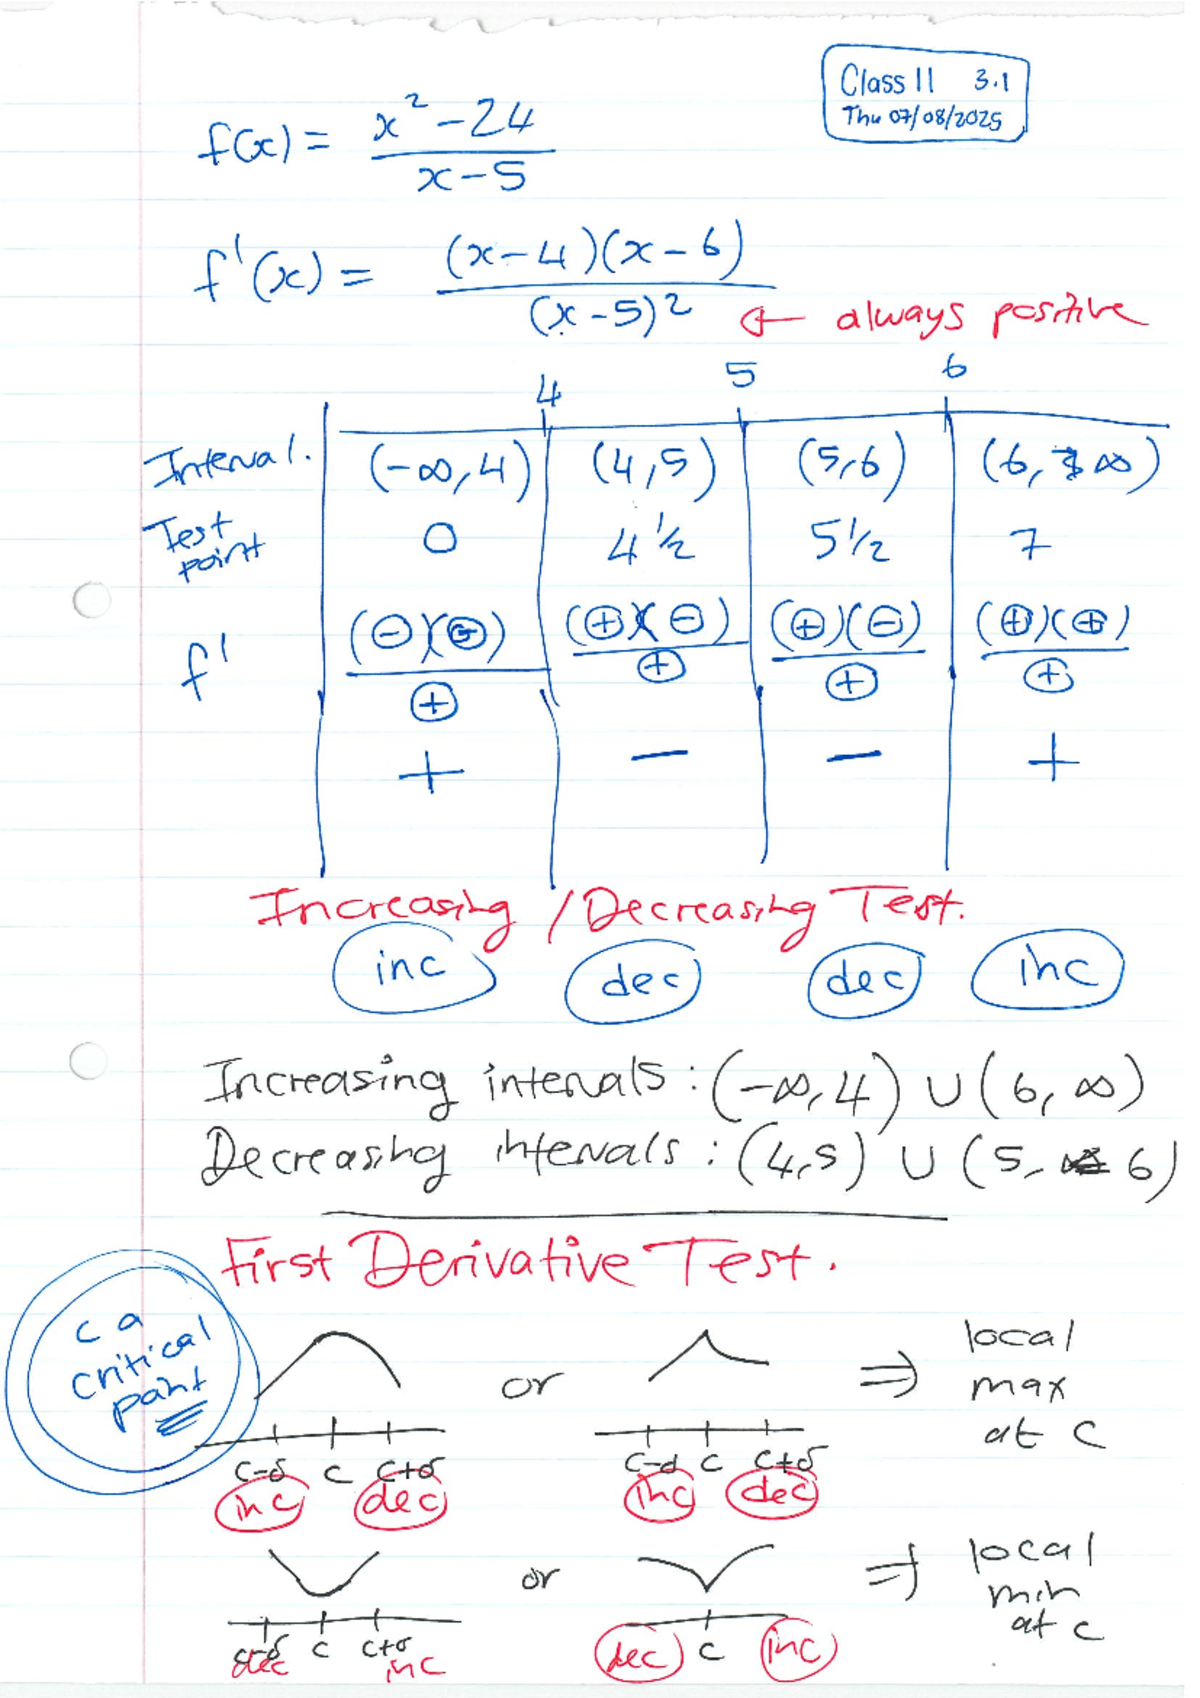 Class 11 3.1
Thu 07/08/2025
f(x) = (x² - 24)/(x - 5)
f'(x) = (x-4)(x-6)/(x-5)² ← always positive
4 5 6
Interval. (-∞, 4) (4, 5) (5, 6) (6, ∞)
Test point 0 4 ½ 5 ½ 7
f' (⊖)(⊖)/⊕ (⊕)(⊖)/⊕ (⊕)(⊖)/⊕ (⊕)(⊕)/⊕
+ − − +
Increasing / Decreasing Test.
inc dec dec inc
Increasing intervals : (-∞, 4) ∪ (6, ∞)
Decreasing intervals : (4, 5) ∪ (5, 6)
First Derivative Test.
c a
critical
point
or ⇒ local
max
at c
c-δ c c+δ c-d c c+δ
inc dec inc dec
or ⇒ local
min
at c
c-δ c c+δ c
dec inc dec inc